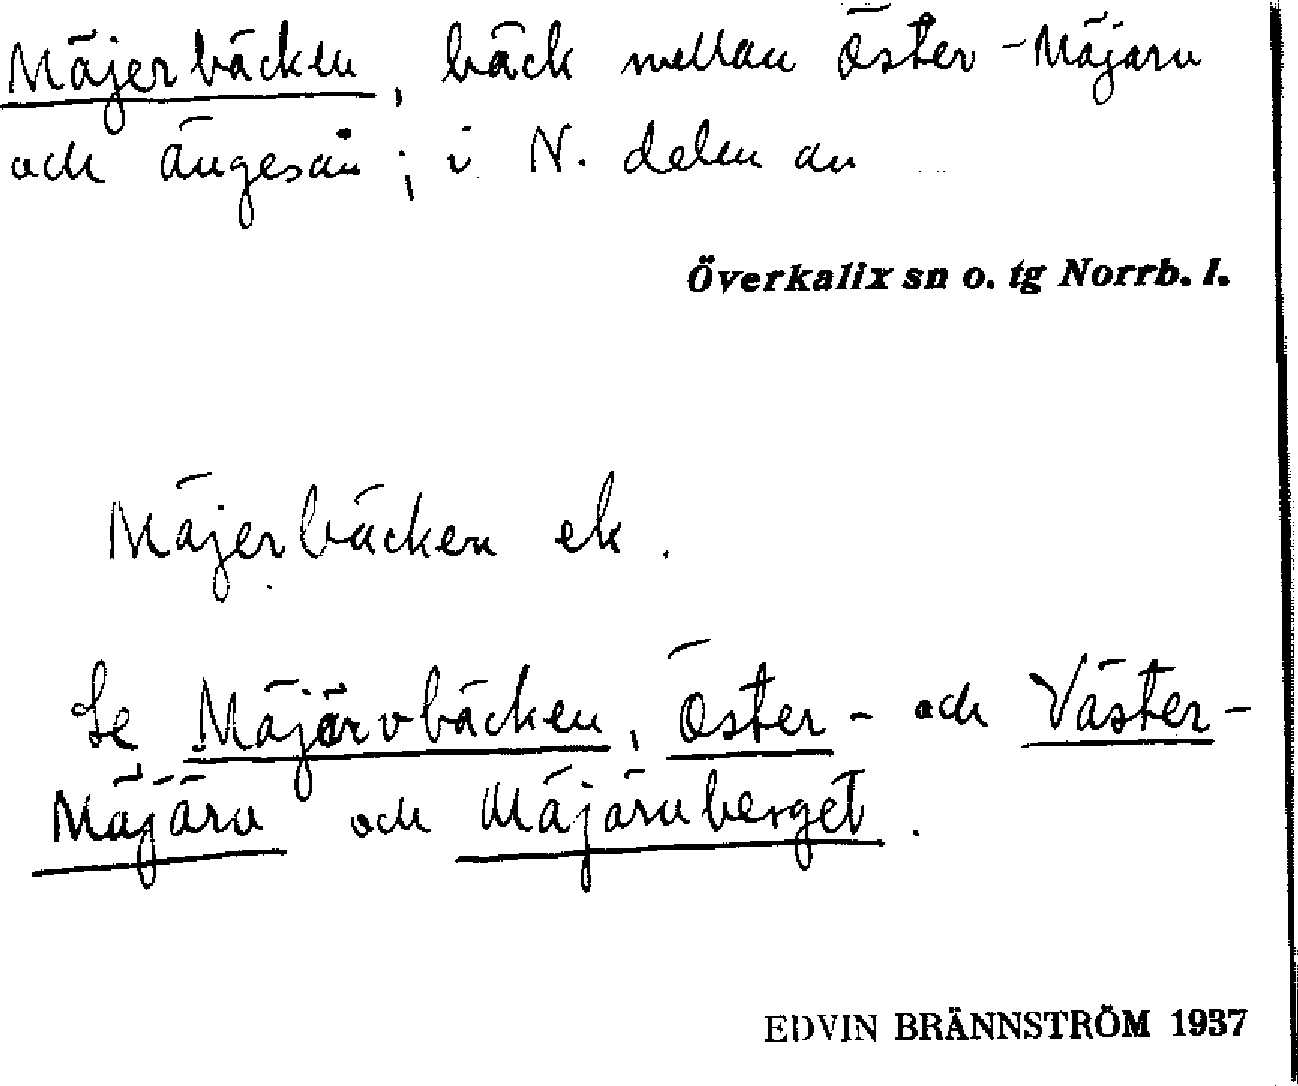 Mäjerbäcken, bäck mellan Öster-Mäjärv
och Ängesån; i N. delen av
Överkalix sn o. tg Norrb. l.
Mäjerbäcken ek.
Se Mäjärvbäcken, Öster- och Väster-
Mäjärv och Mäjärvberget.
EDVIN BRÄNNSTRÖM 1937